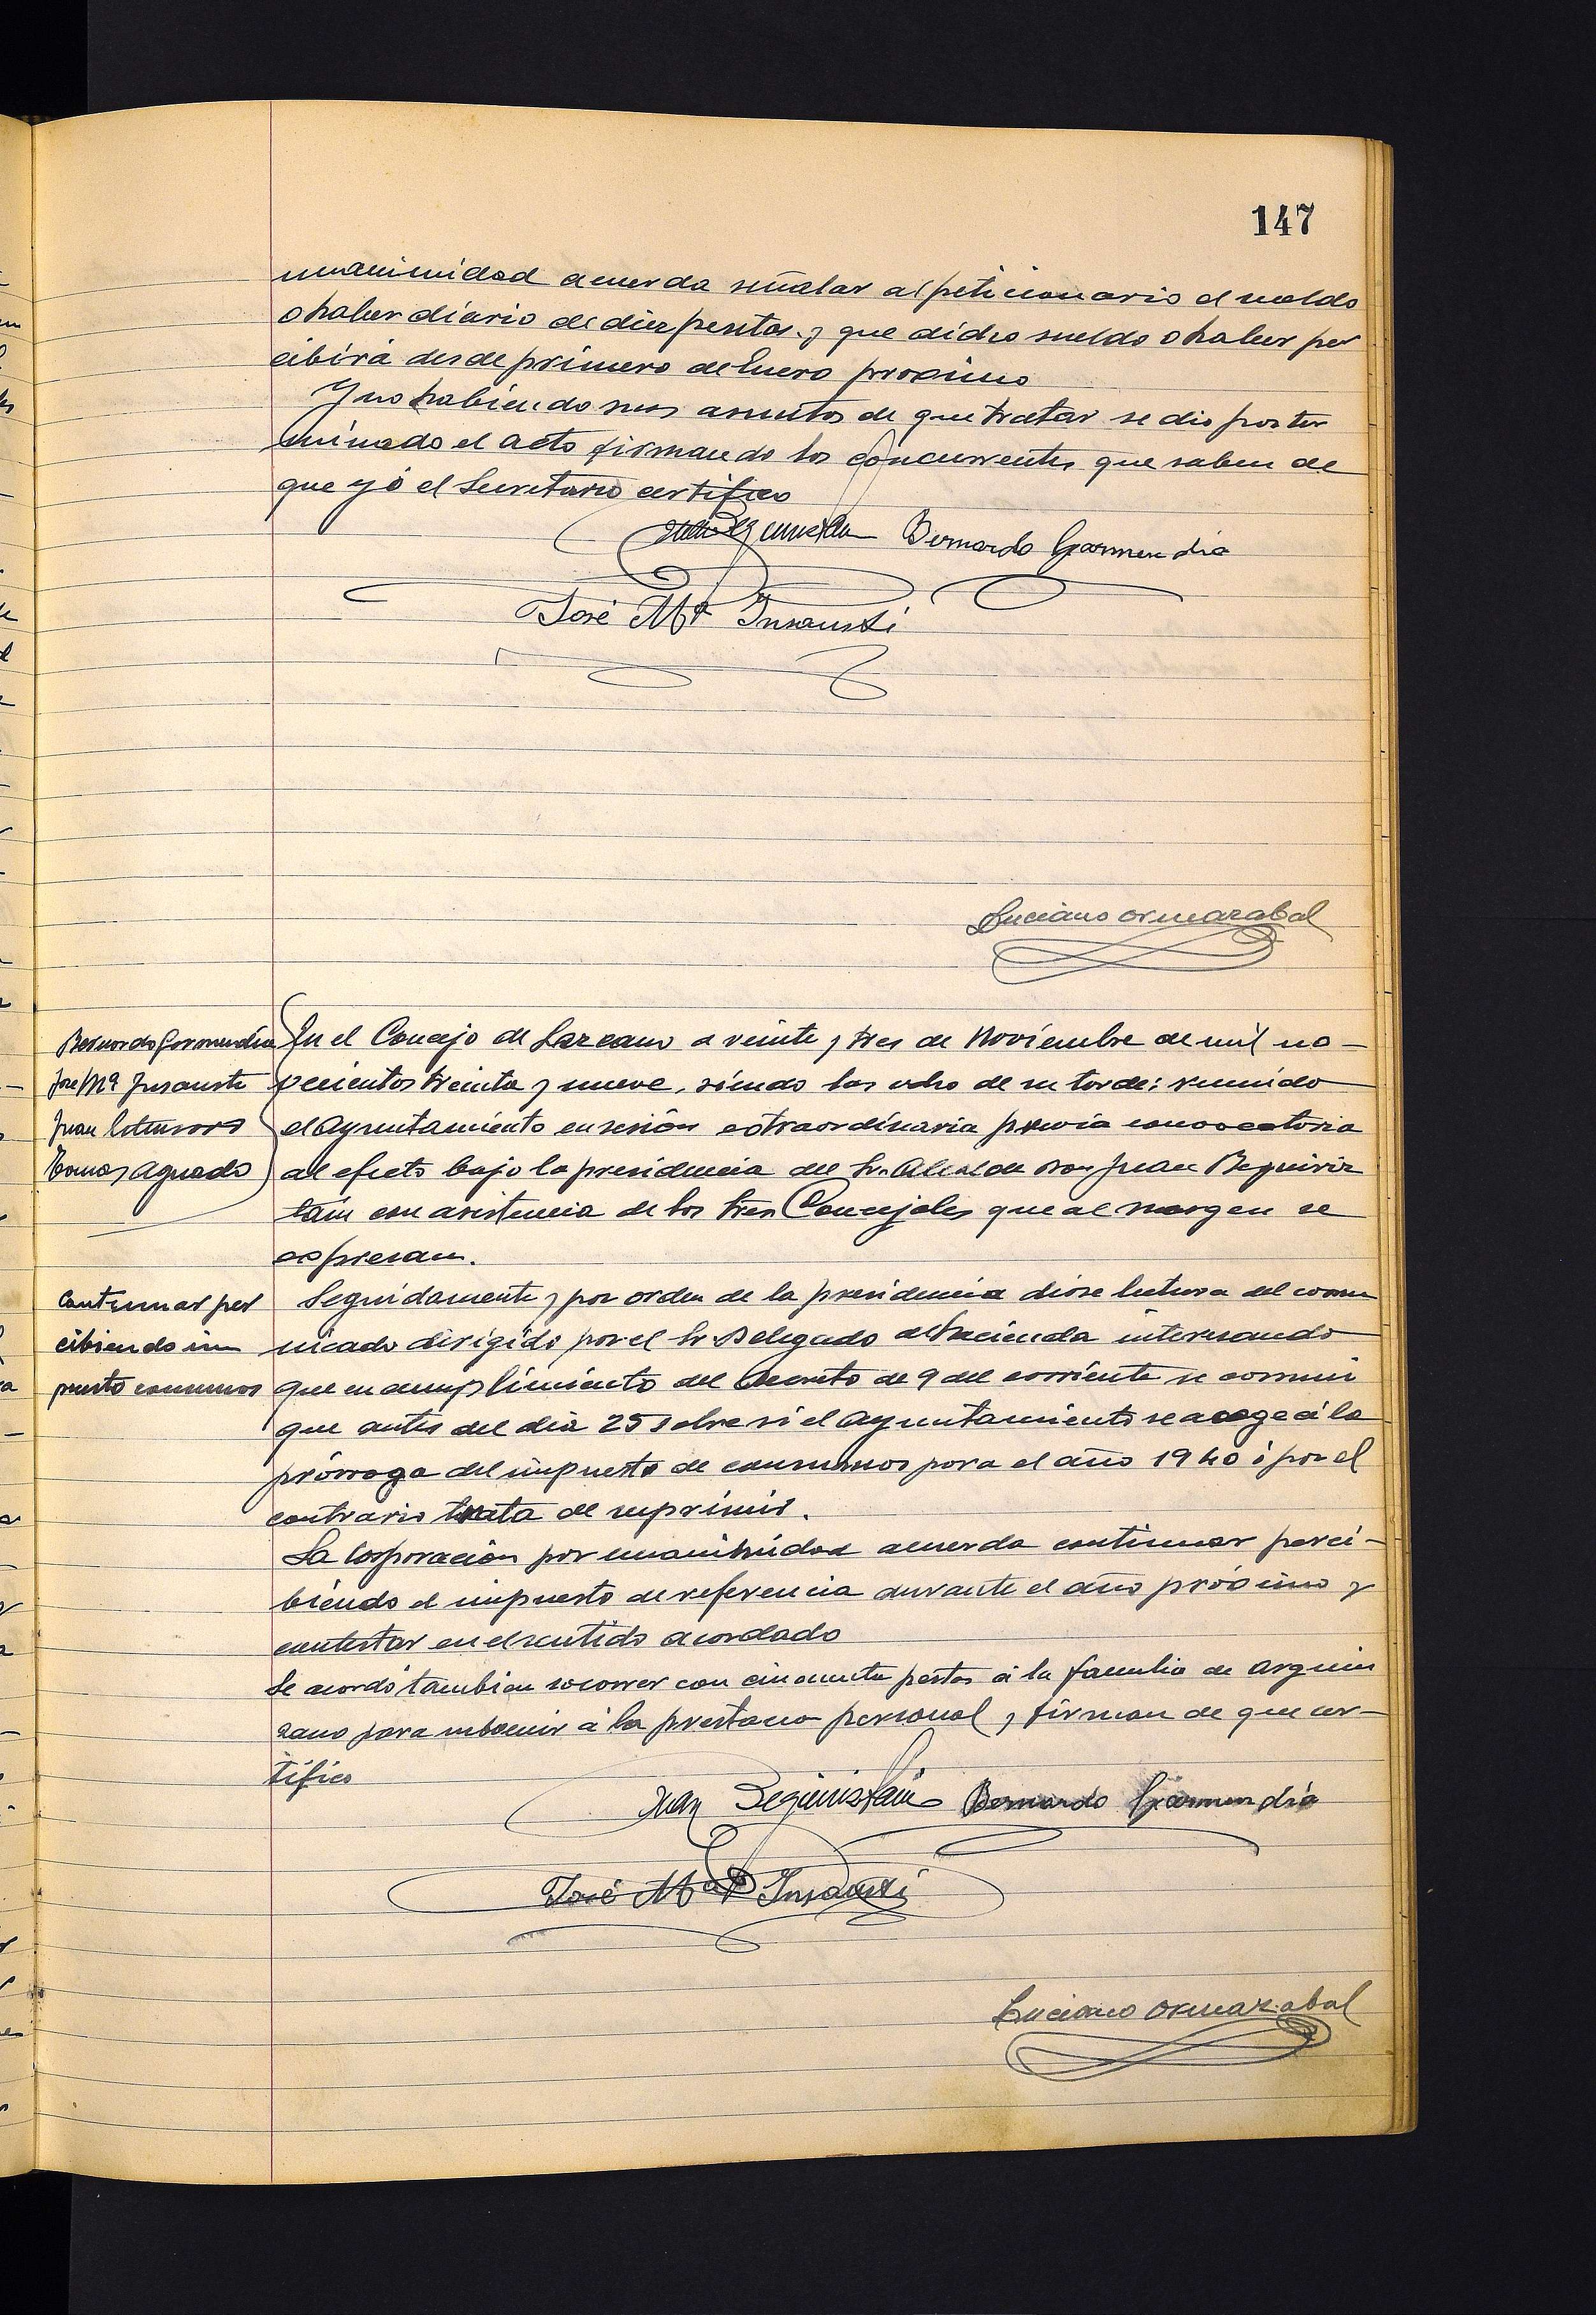 147
unanimidad acuerda señalar al peticionario el sueldo
o haber diario de diez pesetas y que dicho sueldo o haber per
cibirá desde primero de Enero proximo
Y no habiendo mas asuntos de que tratar se dio por ter
minado el acto firmando los concurrentes que saben de
que yó el Secretario certifico
Juan Beguiristain Bernardo Garmendia
José Mª Insausti
Luciano Ormazabal
Bernardo Garmendia
José Mª Insausti
Juan
Tomas Aguado
En el Concejo de Lazcano a veinte y tres de Noviembre de mil no-
vecientos treinta y nueve, siendo las ocho de su tarde; reunido
el Ayuntamiento en sesión extraordinaria previa convocatoria
al efecto bajo la presidencia del Sr. Alcalde Don Juan Beguiris
tain con asistencia de los tres Concejales que al margen se
expresan.
Continuar per
cibiendo im
puesto consumos
Seguidamente y por orden de la presidencia diose lectura del comu
nicado dirigido por el Sr Delegado de Hacienda interesando
que en cumplimiento del Decreto de 9 del corriente se comuni
que antes del dia 25 sobre si el Ayuntamiento se acoge á la
prórroga del impuesto de consumos para el año 1940 ó por el
contrario trata de suprimir.
La Corporación por unanimidad acuerda continuar perci-
biendo el impuesto de referencia durante el año próximo y
contestar en el sentido acordado
Se acordó tambien socorrer con cincuenta pestas á la familia de Arguin
zano para subvenir á la prestacion personal y firman de que cer-
tifico
Juan Beguiristain Bernardo Garmendia
José Mª Insausti
Luciano Ormazabal